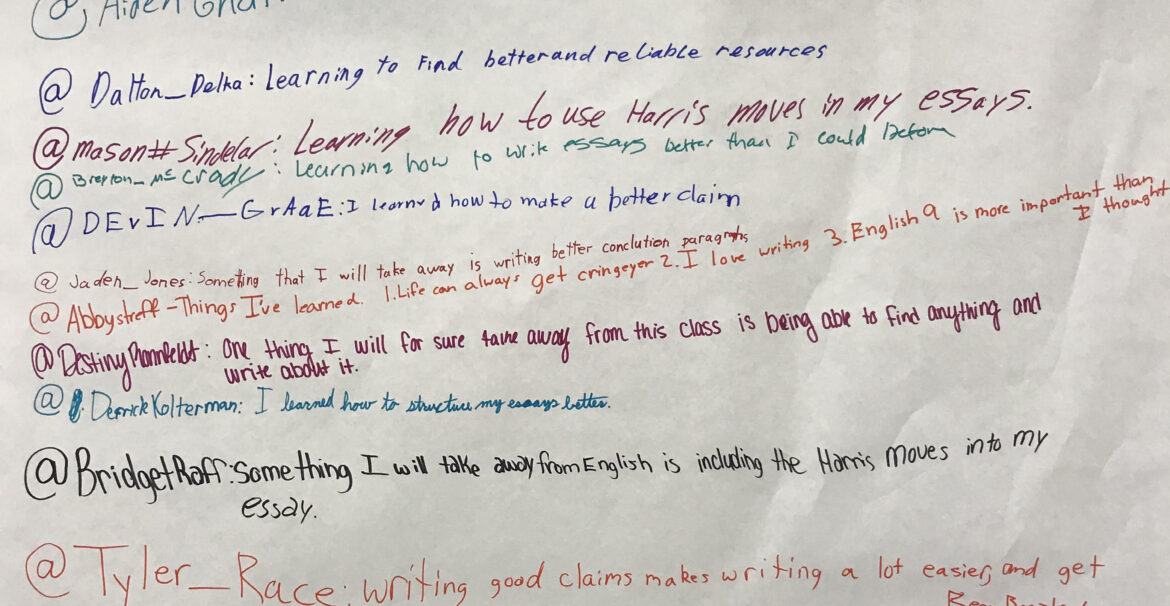 @ Aiden
@ Dalton_Delka: Learning to Find better and reliable resources
@mason#Sindelar: Learning how to use Harris moves in my essays.
@ Breyton_McCrady: Learning how to write essays better than I could before
@ DEvIN_GrAaE: I learned how to make a better claim
@ Jaden_Jones: Something that I will take away is writing better conclution paragraphs
@ Abbystreff - Things I've learned. 1. Life can always get cringeyer 2. I love writing 3. English 9 is more important than
I thought
@Destiny: One thing I will for sure take away from this class is being able to find anything and
write about it.
@ Derrick Kolterman: I learned how to structure my essays better.
@BridgetRaff: Something I will take away from English is including the Harris moves into my
essay.
@Tyler_Race: writing good claims makes writing a lot easier, and get